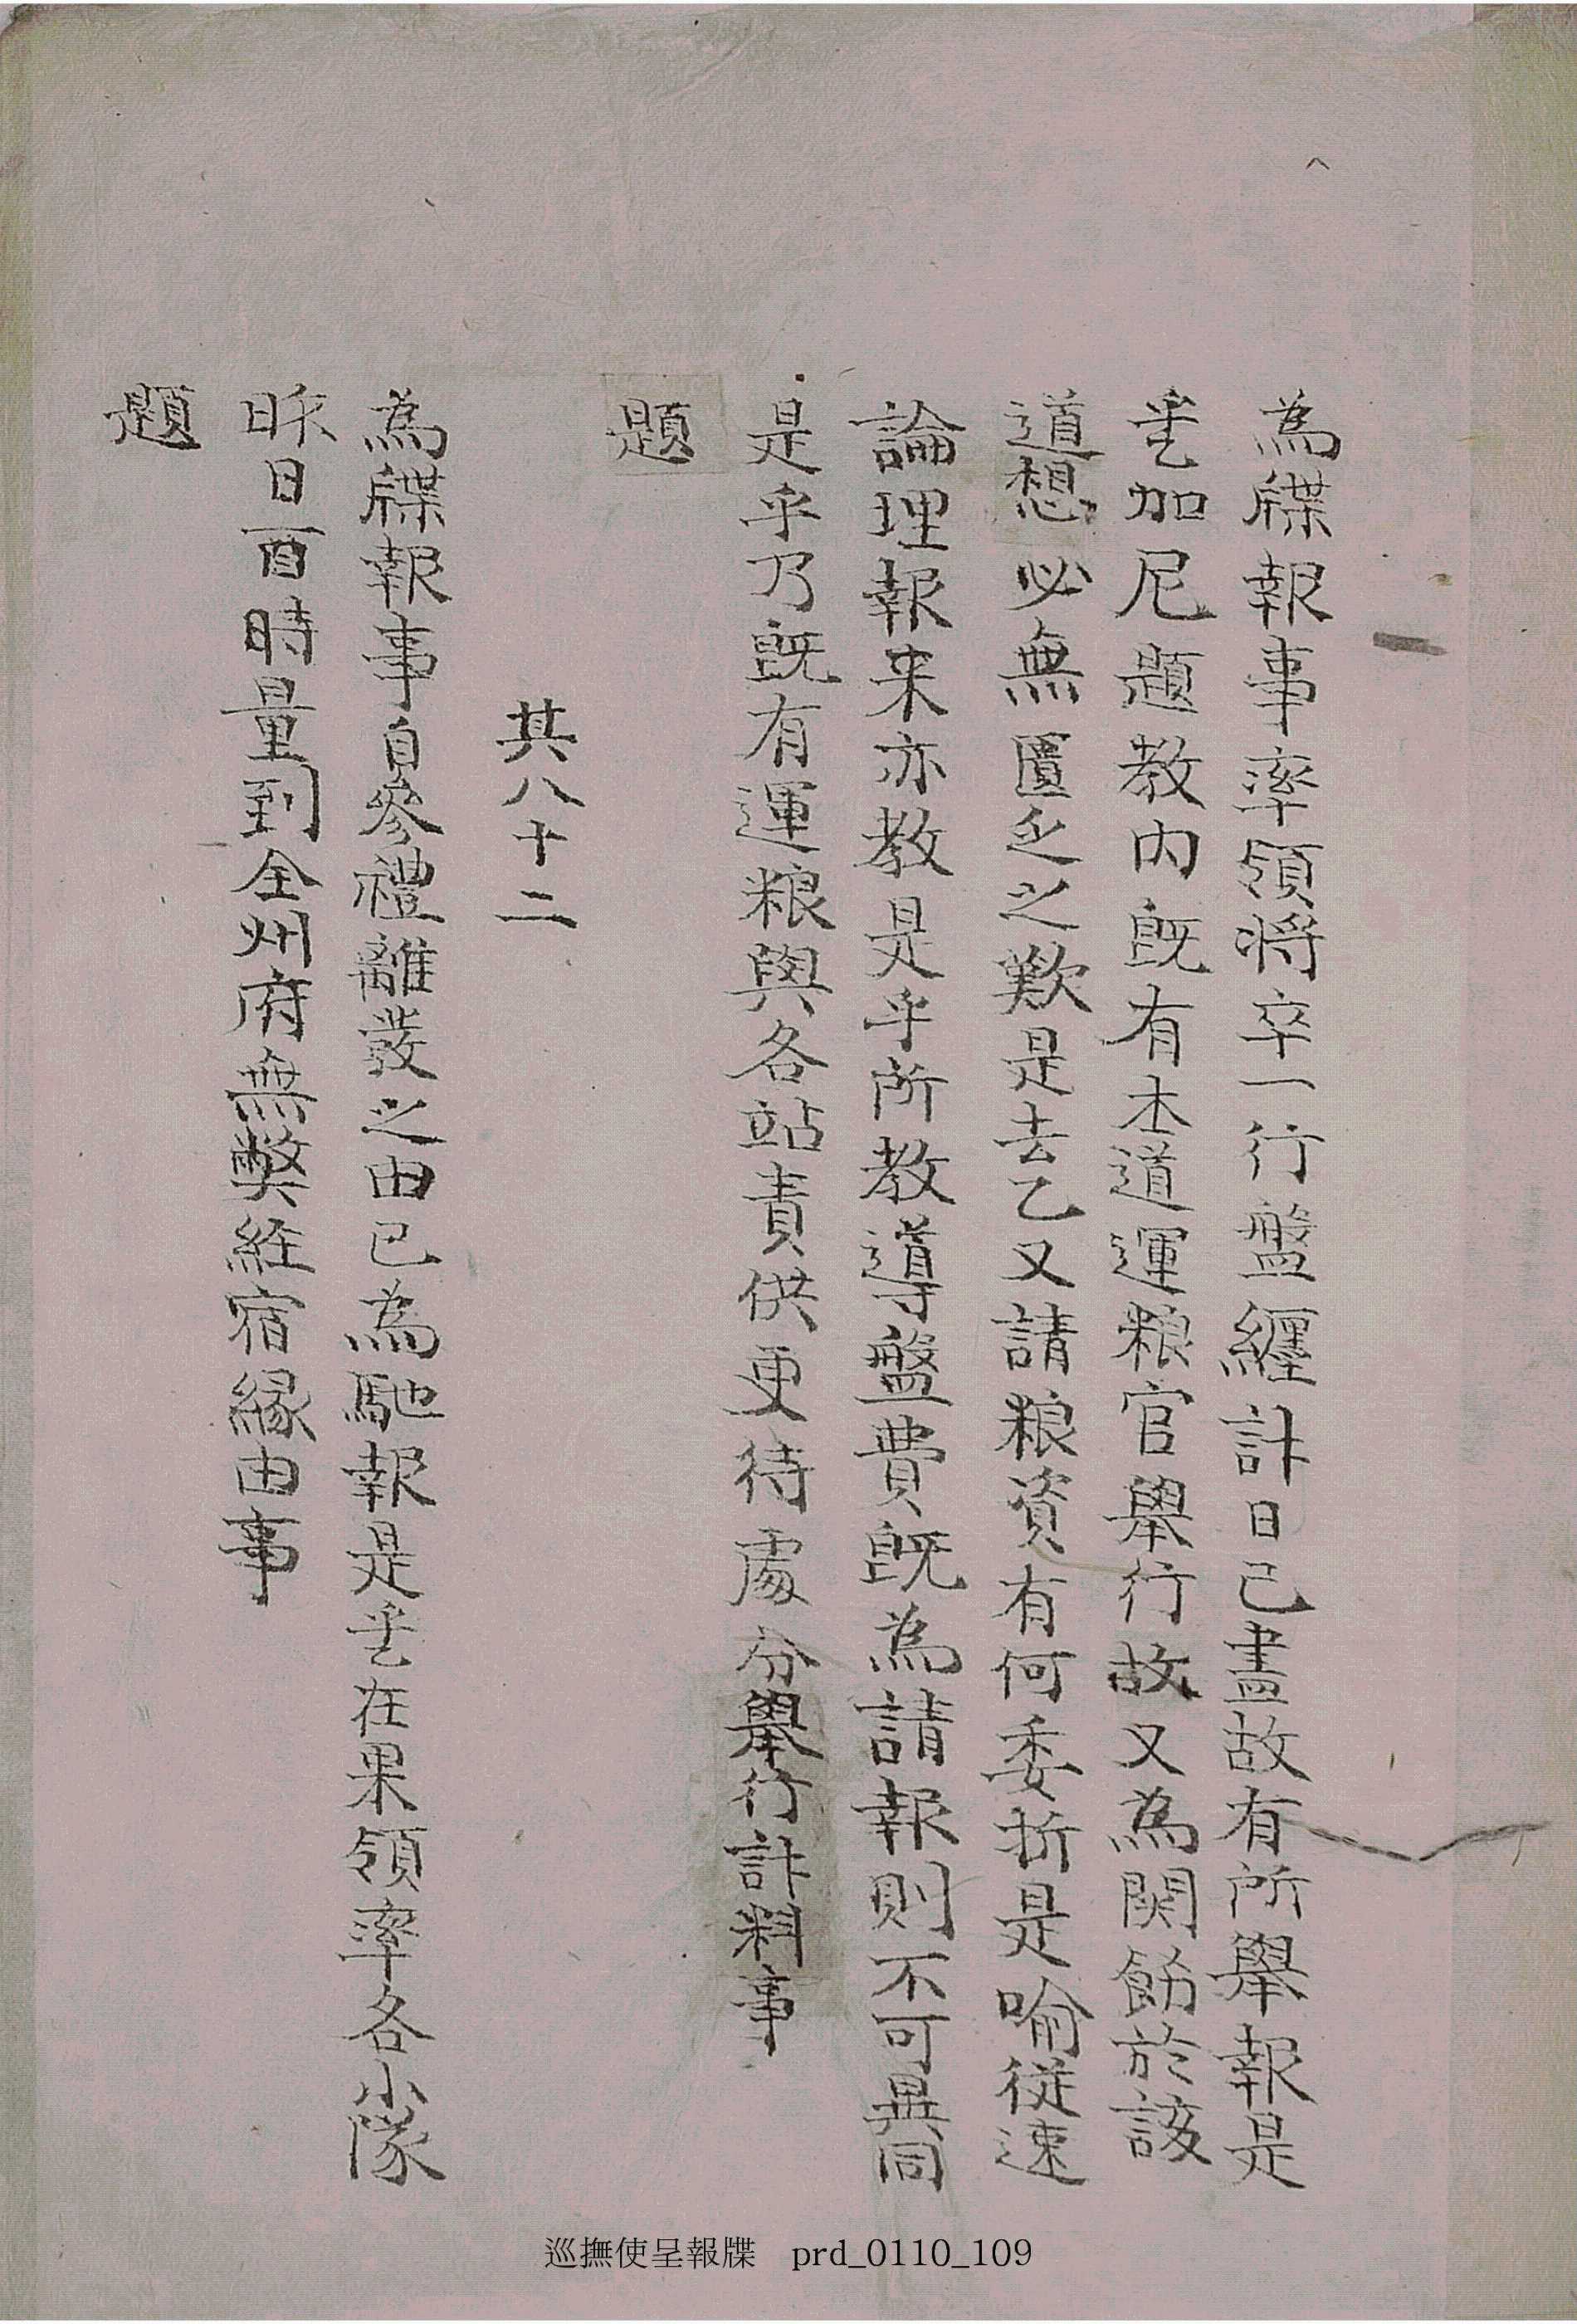 為牒報事率領將卒一行盤纏計日已盡故有所擧報是
乎加尼題教內旣有本道運粮官擧行故又為関飭於該
道想必無匱乏之歎是去乙又請粮資有何委折是喩從速
論理報来亦教是乎所教導盤費旣為請報則不可異同
是乎乃旣有運粮與各站責供更待處分擧行計料事
題
其八十二
為牒報事自參禮離發之由已為馳報是乎在果領率各小隊
昨日酉時量到全州府無獘経宿緣由事
題
巡撫使呈報牒 prd_0110_109